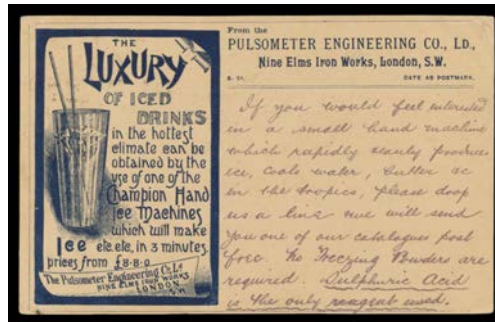 THE
LUXURY
OF ICED
DRINKS
in the hottest
climate can be
obtained by the
use of one of the
Champion Hand
Ice Machines
which will make
Ice etc. etc. in 3 minutes.
prices from £8-8-0
The Pulsometer Engineering Co. Ld
NINE ELMS IRON WORKS
LONDON
S.W.
From the
PULSOMETER ENGINEERING CO., LD.,
Nine Elms Iron Works, London, S.W.
DATE AS POSTMARK.
If you would feel interested
in a small hand machine
which rapidly really produces
ice, cools water, butter &c
in the tropics, please drop
us a line & we will send
you one of our catalogues post
free. No Freezing Powders are
required. Sulphuric Acid
is the only reagent used.